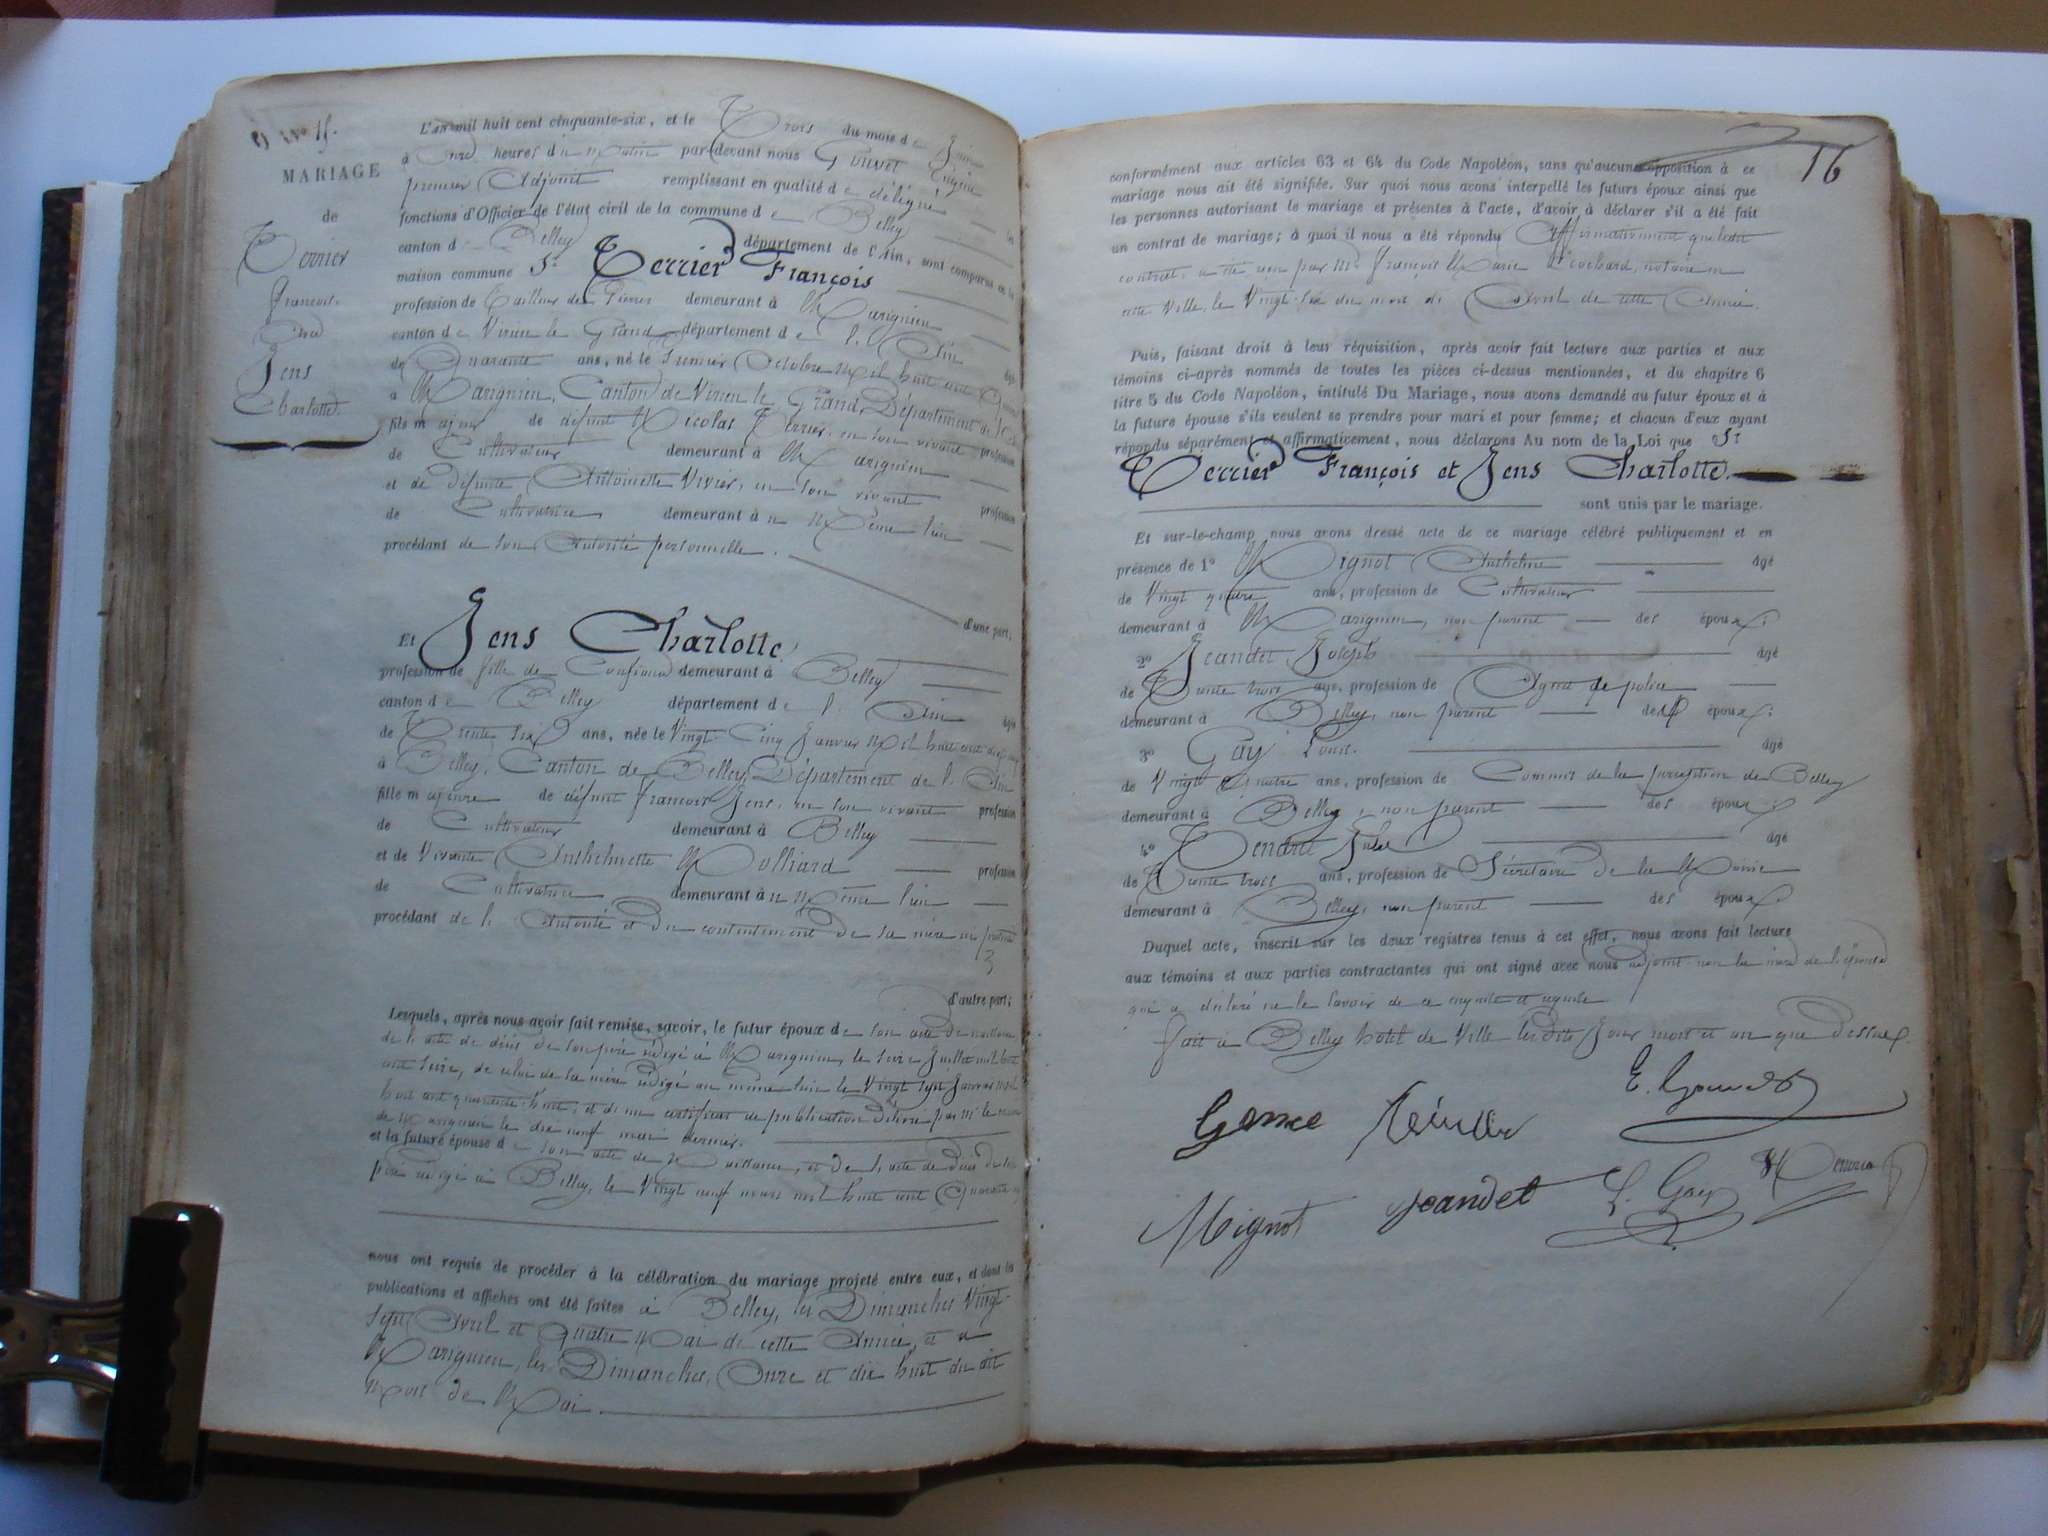 N° 15.
MARIAGE
de
Terrier
François.
Et
Jens
Charlotte.
L'an mil huit cent cinquante-six, et le Trois du mois de Juin
à Onze heures du Matin par-devant nous Gouvet Eugène
premier Adjoint remplissant en qualité de délégué les
fonctions d'Officier de l'état civil de la commune de Belley
canton de Belley département de l'Ain, sont comparus en la
maison commune Sr. Terrier François
profession de Tailleur de Pierres demeurant à Marignieu
canton de Virieu le Grand département de l'Ain âgé
de Quarante ans, né le Premier Octobre Mil huit cent
à Marignieu, Canton de Virieu le Grand, Département de l'Ain
fils majeur de défunt Nicolas Terrier, en son vivant profession
de Cultivateur demeurant à Marignieu
et de défunte Antoinette Vivier, en son vivant profession
de Cultivatrice demeurant à u Même lieu
procédant de son Autorité personnelle.
d'une part;
Et Jens Charlotte.
profession de fille de Confiance demeurant à Belley
canton de Belley département de l'Ain âgée
de Trente Six ans, née le Vingt-Cinq Janvier Mil huit cent
à Belley, Canton de Belley, Département de l'Ain
fille majeure de défunt François Jens, en son vivant profession
de Cultivateur demeurant à Belley
et de Vivante Anthelmette Molliard profession
de Cultivatrice demeurant à u Même lieu
procédant de l'Autorité et du consentement de sa mère ici présente
d'autre part;
Lesquels, après nous avoir fait remise, savoir, le futur époux de son acte de naissance
de l'acte de décès de son père rédigé à Marignieu, le seize Juillet mil huit
cent seize, de celui de sa mère rédigé au même lieu le Vingt sept Janvier mil
huit cent quarante huit, et de un certificat de publication délivré par Mr le maire
de Marignieu le dix neuf mai dernier.
et la future épouse de son acte de Naissance, et de l'acte de décès de son
père rédigé à Belley, le Vingt neuf mars mil huit cent Quarante
nous ont requis de procéder à la célébration du mariage projeté entre eux, et dont les
publications et affiches ont été faites à Belley, les Dimanches Vingt-
Sept Avril et Quatre Mai de cette Année, et à
Marignieu, les Dimanches, Onze et dix huit du dit
Mois de Mai.
16
conformément aux articles 63 et 64 du Code Napoléon, sans qu'aucune opposition à ce
mariage nous ait été signifiée. Sur quoi nous avons interpellé les futurs époux ainsi que
les personnes autorisant le mariage et présentes à l'acte, d'avoir à déclarer s'il a été fait
un contrat de mariage; à quoi il nous a été répondu Affirmativement que ledit
contrat a été reçu par Mr. François Marie notaire en
cette Ville, le Vingt-Six du mois de Avril de cette Année.
Puis, faisant droit à leur réquisition, après avoir fait lecture aux parties et aux
témoins ci-après nommés de toutes les pièces ci-dessus mentionnées, et du chapitre 6
titre 5 du Code Napoléon, intitulé Du Mariage, nous avons demandé au futur époux et à
la future épouse s'ils veulent se prendre pour mari et pour femme; et chacun d'eux ayant
répondu séparément et affirmativement, nous déclarons Au nom de la Loi que Sr
Terrier François et Jens Charlotte.
sont unis par le mariage.
Et sur-le-champ nous avons dressé acte de ce mariage célébré publiquement et en
présence de 1° Mignot Anthelme âgé
de Vingt quatre ans, profession de Cultivateur
demeurant à Marignieu, non parent des époux;
2° Jeandet Joseph âgé
de Trente trois ans, profession de Agent de police
demeurant à Belley, non parent des époux;
3° Gay Louis. âgé
de Vingt Quatre ans, profession de Commis de la perception de Belley
demeurant à Belley, non parent des époux;
4° Tendret Jules âgé
de Trente trois ans, profession de Sécrétaire de la Mairie
demeurant à Belley, non parent des époux
Duquel acte, inscrit sur les deux registres tenus à cet effet, nous avons fait lecture
aux témoins et aux parties contractantes qui ont signé avec nous adjoint non la mère de l'épouse
qui a déclaré ne le savoir de ce enquise et requise
fait à Belley hôtel de Ville les dits Jour mois et an que dessus.
E. Gouvet
Mignot Jeandet L. Gay